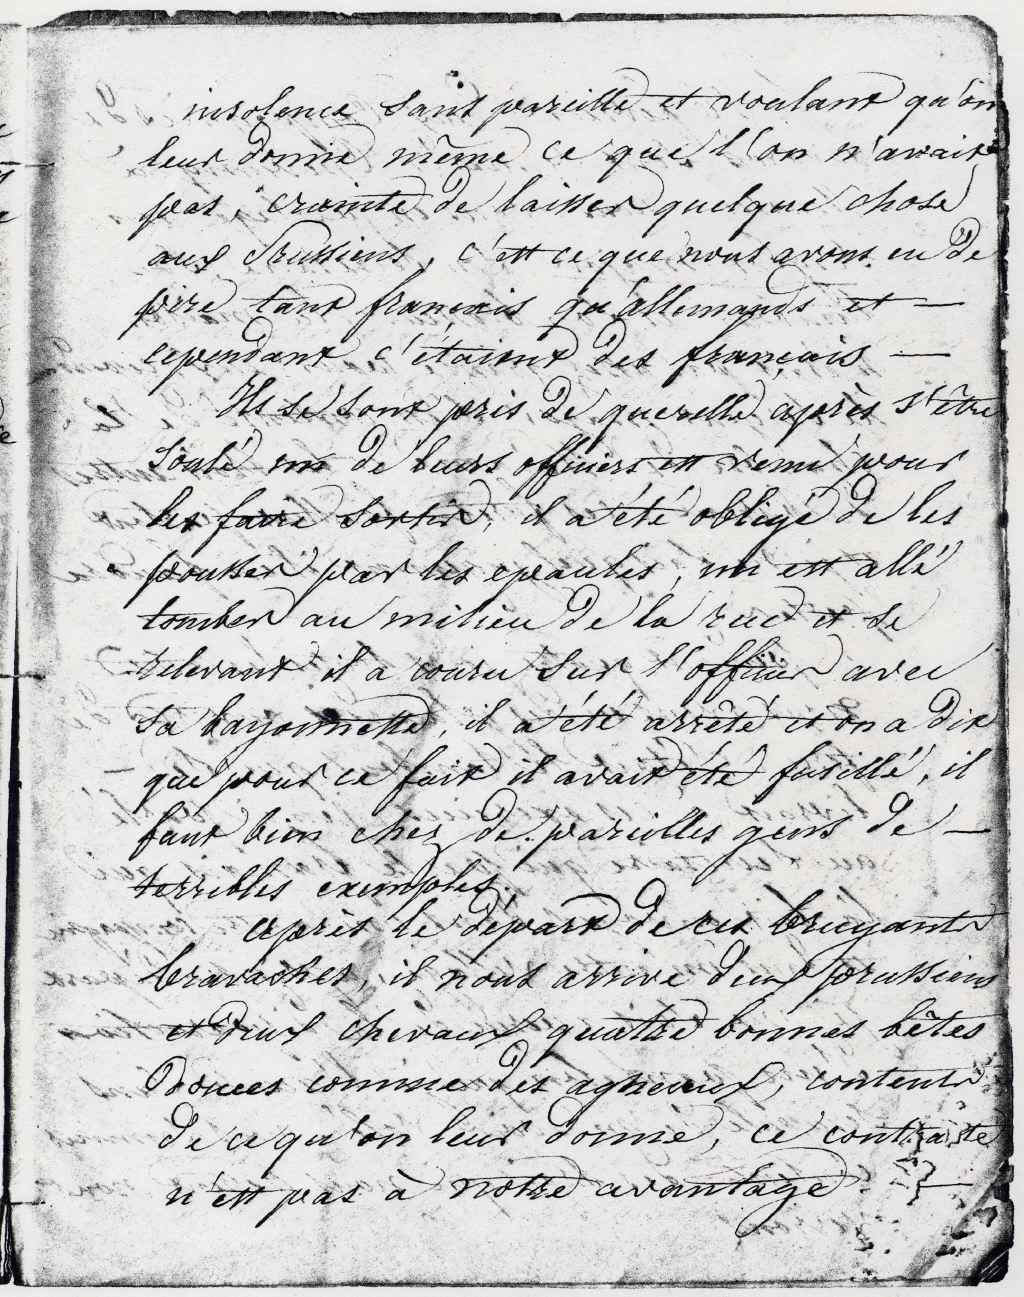 insolence sans pareille et voulant qu'on
leur donne même ce que l'on n'avait
pas, crainte de laisser quelque chose
aux Prussiens, c'est ce que nous avons eu de
pire tant français qu'allemands et —
cependant c'étaient des français —
Ils se sont pris de querelle après s'être
soulé un de leurs officiers est venu pour
les faire sortir, il a été obligé de les
pousser par les epaules, un est allé
tomber au milieu de la rue et se
relevant il a couru sur l'officier avec
sa bayonnette, il a été arrêté et on a dit
que pour ce fait il avait été fusillé, il
faut bien chez de pareilles gens de —
terribles exemples.
après le départ de ces bruyants
bravaches, il nous arrive deux prussiens
et deux chevaux quatre bonnes bêtes
douces comme des agneaux, contents
de ce qu'on leur donne, ce contraste
n'est pas à notre avantage —